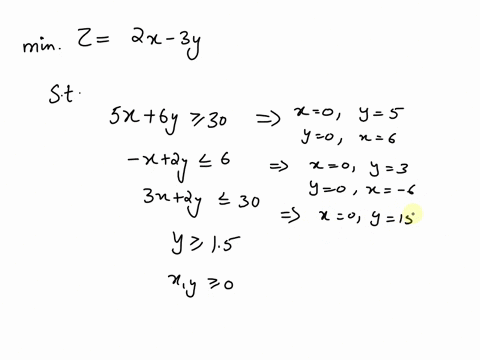 min. Z = 2x - 3y
S.t.
5x + 6y ≥ 30 ⇒ x=0, y=5
y=0, x=6
-x+2y ≤ 6 ⇒ x=0, y=3
y=0, x=-6
3x+2y ≤ 30 ⇒ x=0, y=15
y ≥ 1.5
x,y ≥ 0